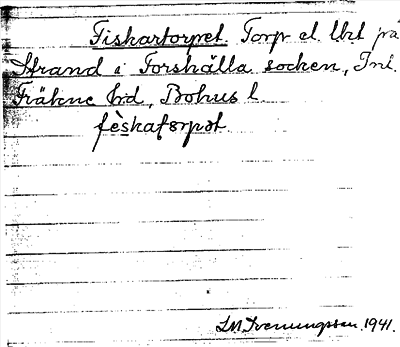 Fiskartorpet. Torp el. lht på
Strand i Forshälla socken, Inl.
Fräkne hd, Bohus l.
fèskatorpət
1941.